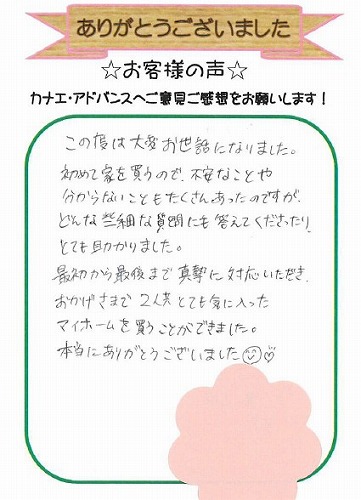 ありがとうございました
☆お客様の声☆
カナエ・アドバンスへご意見ご感想をお願いします！
この度は大変お世話になりました。
初めて家を買うので、不安なことや
分からないこともたくさんあったのですが、
どんな些細な質問にも答えてくださったり、
とても助かりました。
最初から最後まで真摯に対応いただき、
おかげさまで2人共とても気に入った
マイホームを買うことができました。
本当にありがとうございました☺♡